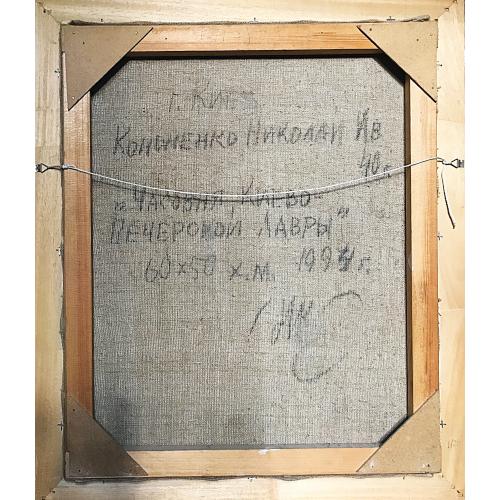 г. Киев
Кононенко Николай Ив
40 г.
"Часовня, Киево-
Печерской Лавры"
60x50 х.м. 1994 г.